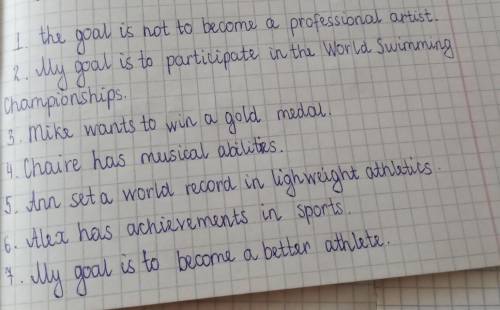 1. the goal is not to become a professional artist.
2. My goal is to participate in the World Swimming
Championships.
3. Mike wants to win a gold medal.
4. Chaire has musical abilities.
5. Ann set a world record in lighweight athletics.
6. Alex has achievements in sports.
7. My goal is to become a better athlete.